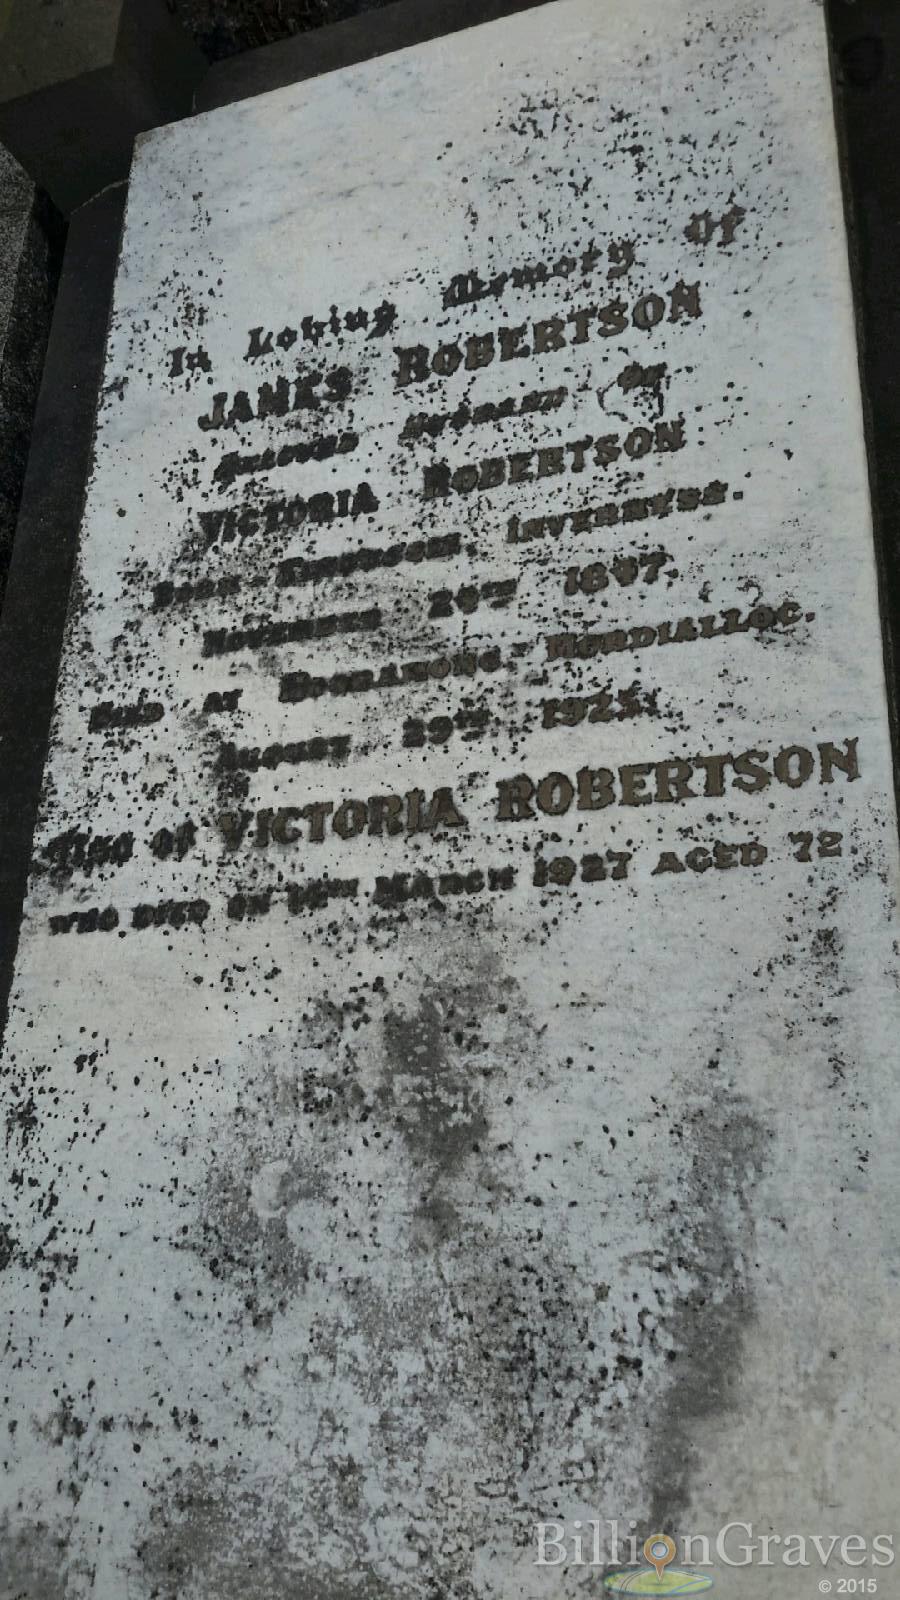 In Loving Memory Of
JAMES ROBERTSON
BELOVED HUSBAND OF
VICTORIA ROBERTSON
BORN INVERNESS.
NOVEMBER 1847.
DIED AT MORDIALLOC.
AUGUST 29TH 1925.
ALSO OF VICTORIA ROBERTSON
WHO DIED ON MARCH 1927 AGED 72
BillionGraves
© 2015